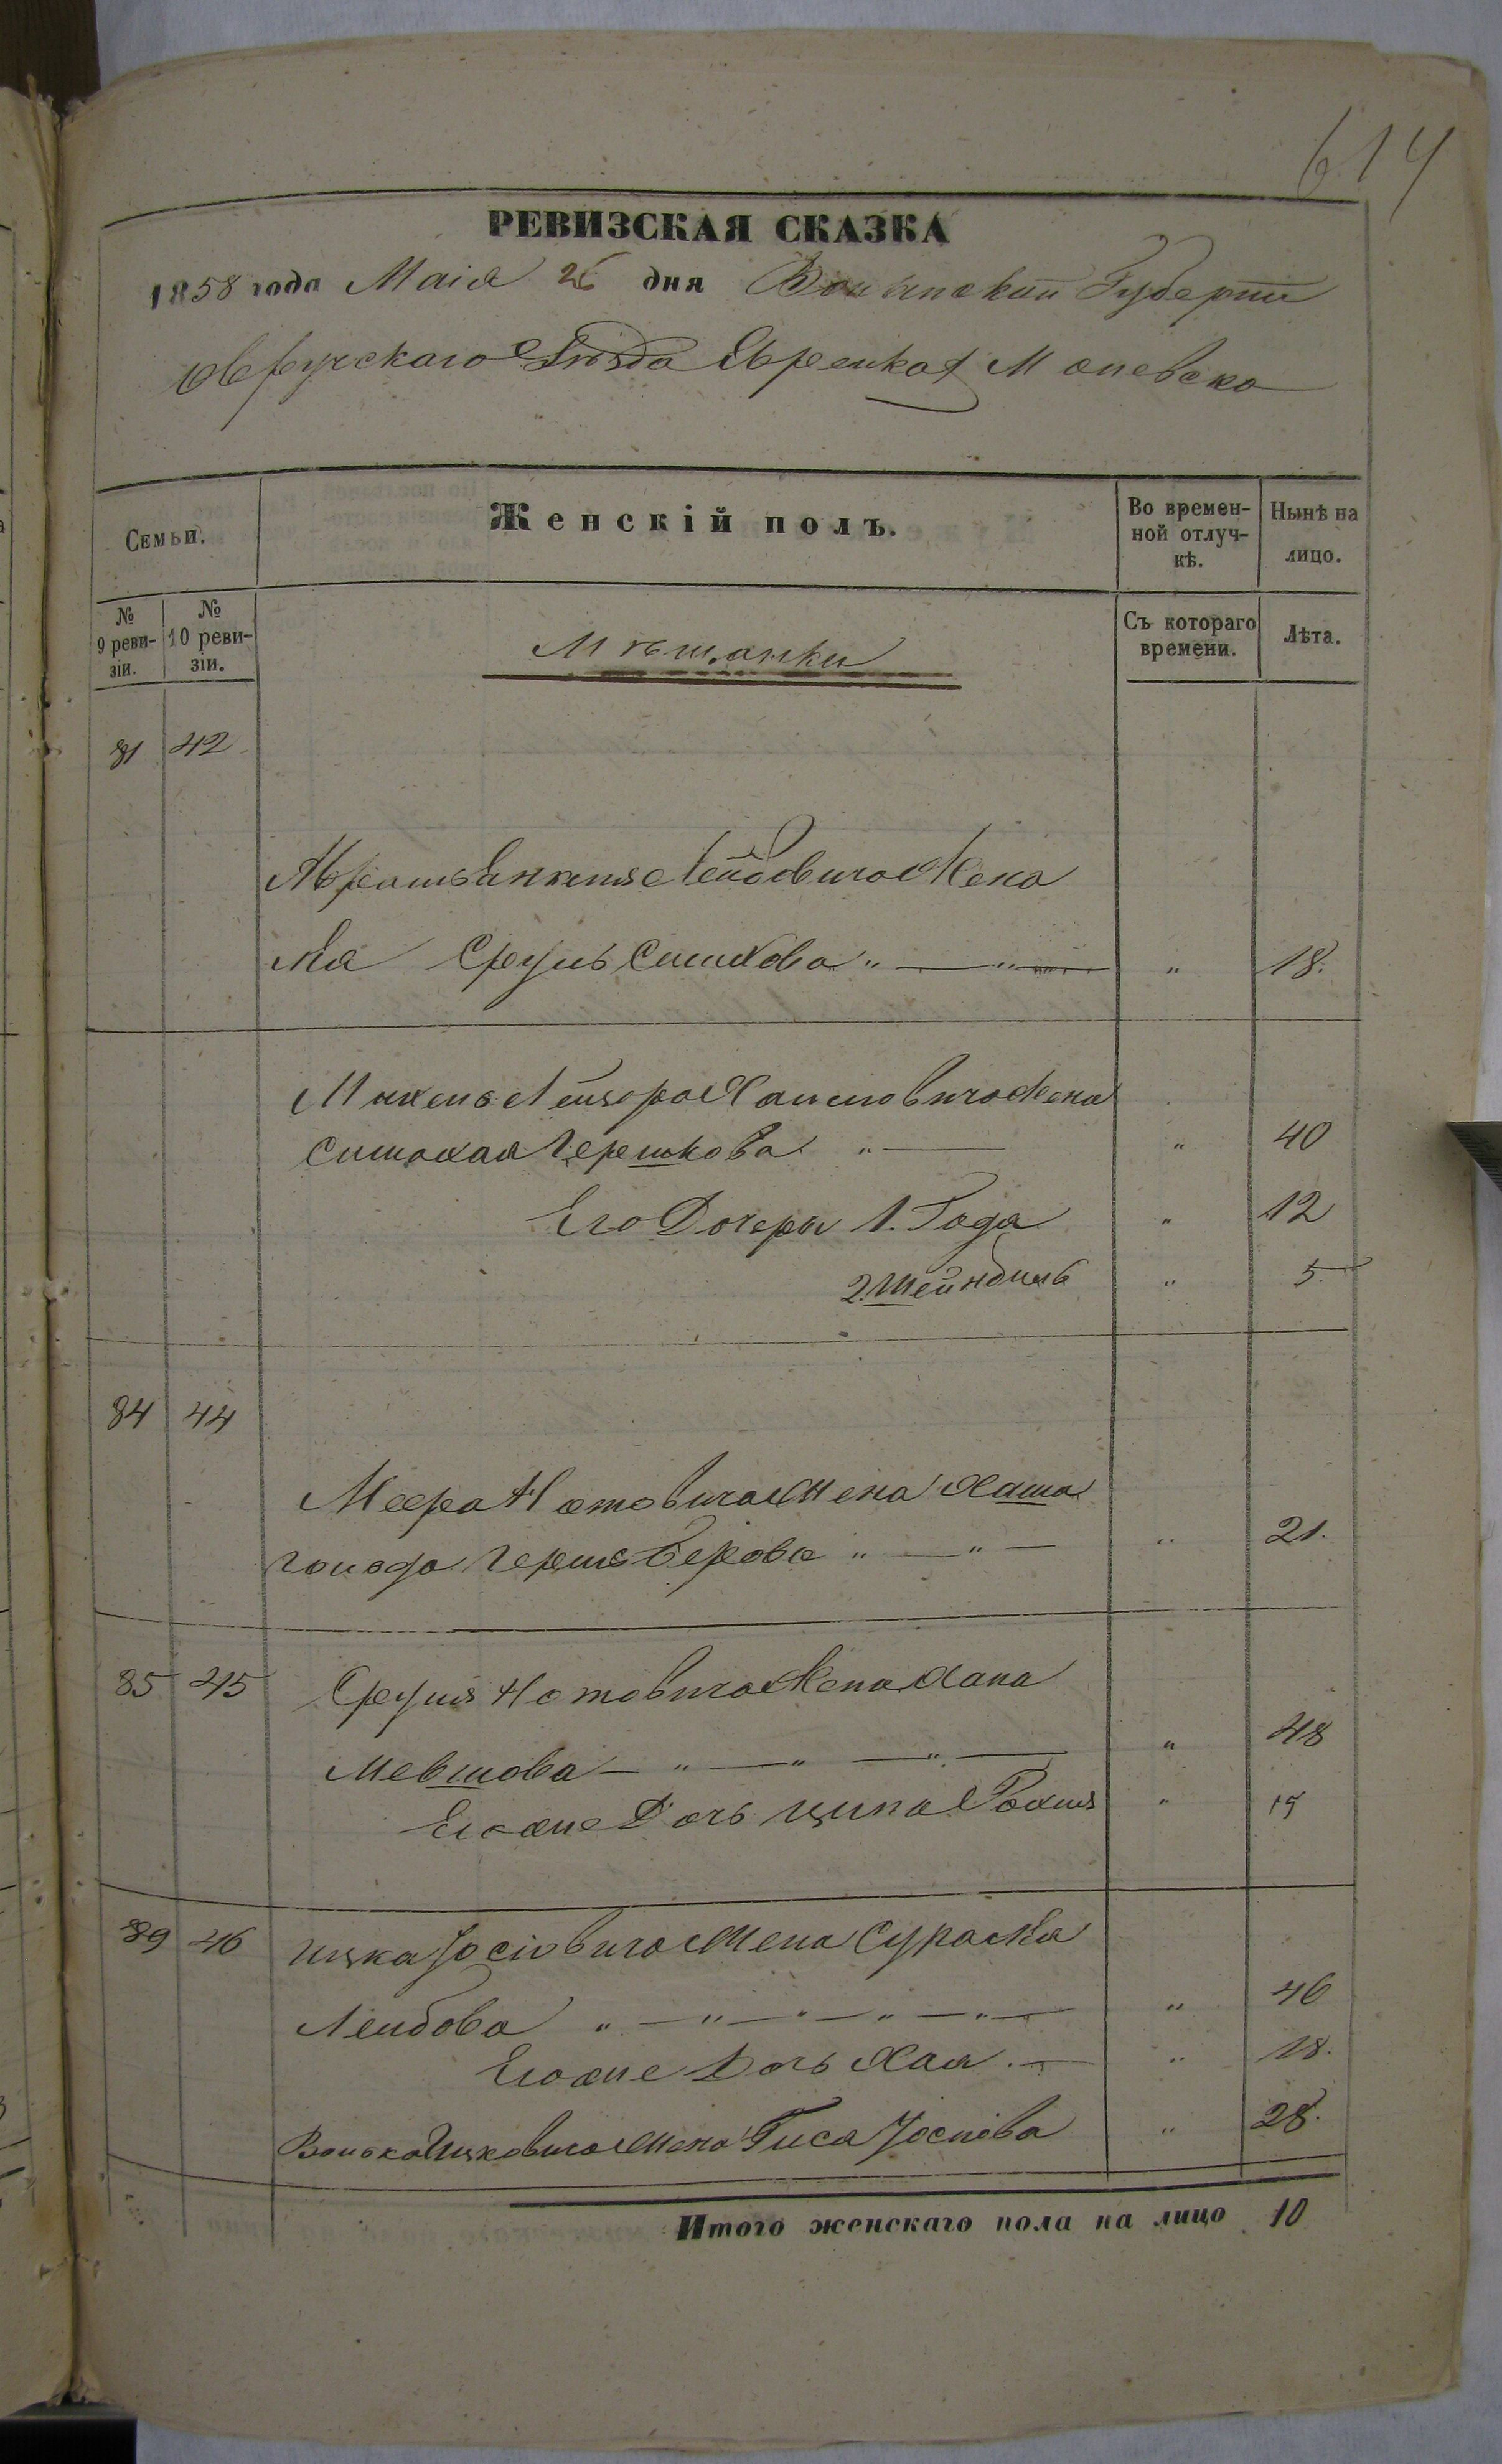 614
РЕВИЗСКАЯ СКАЗКА
1858 года Маія 26 дня Волынской Губерніи
Овручскаго Уѣзда Евреика
Семьи.
Женскій полъ.
Во времен-
ной отлуч-
кѣ.
Нынѣ на
лицо.
№
9 реви-
зіи.
№
10 реви-
зіи.
Мѣшанки
Съ котораго
времени.
Лѣта.
81 42
Абрамъ Янкеля Лейбовича Жена
Срулъ " — " — " 18.
Лейзора Хаимовича Жена
Гершкова " — " 40
Его Дочери 1. Года " 12
2. Шейндиль " 5.
84 44
Меера Нотовича Жена Хаша
Голда Гершъ Берова " — " — " 21.
85 45 Сруля Нотовича Жена Хана
Мевшова — " — " — " — " 48
Егоже Дочь Ципа Рохля "
89 46 Ицка Іосіовича Жена Сура
Лейбова " — " — " — " — " — " 46
Егоже Дочь Хая. — " 18.
Волька Ицковича Жена Гиса Іосиова " 28.
Итого женскаго пола на лицо 10